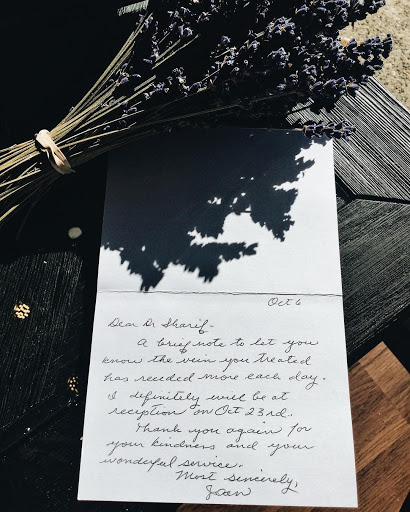 Oct 6
Dear Dr Sharif-
A brief note to let you
know the vein you treated
has receded more each day.
I definitely will be at
reception on Oct 23rd.
Thank you again for
your kindness and your
wonderful service.
Most sincerely,
Joan